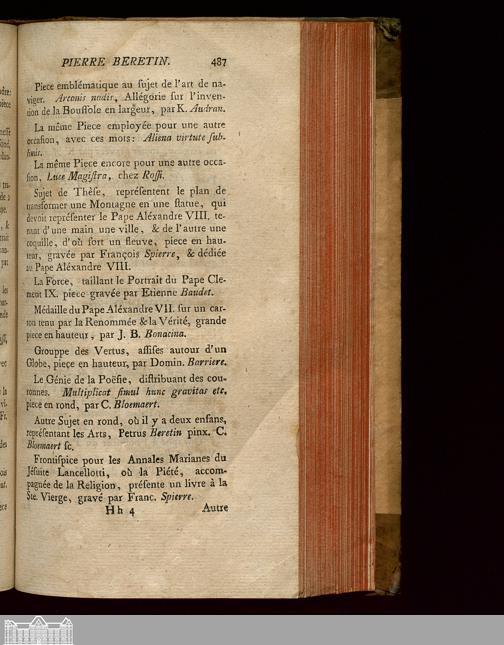 PIERRE BERETIN. 487
Piece emblématique au sujet de l'art de na-
viger. Arconis nodis, Allégorie sur l'inven-
tion de la Boussole en largeur, par K. Audran.
La même Piece employée pour une autre
occasion, avec ces mots: Aliena virtute sub-
limis.
La même Piece encore pour une autre occa-
sion, Luce Magistra, chez Rossi.
Sujet de Thèse, représentent le plan de
transformer une Montagne en une statue, qui
devoit représenter le Pape Aléxandre VIII. te-
nant d'une main une ville, & de l'autre une
coquille, d'où sort un fleuve, piece en hau-
teur, gravée par François Spierre, & dédiée
au Pape Aléxandre VIII.
La Force, taillant le Portrait du Pape Cle-
ment IX. piece gravée par Etienne Baudet.
Médaille du Pape Aléxandre VII. sur un car-
ton tenu par la Renommée & la Vérité, grande
piece en hauteur, par J. B. Bonacina.
Grouppe des Vertus, assises autour d'un
Globe, piece en hauteur, par Domin. Barriere.
Le Génie de la Poësie, distribuant des cou-
ronnes. Multiplicat simul hunc gravitas etc.
piece en rond, par C. Bloemaert.
Autre Sujet en rond, où il y a deux enfans,
représentant les Arts, Petrus Beretin pinx. C.
Bloemaert sc.
Frontispice pour les Annales Marianes du
Jésuite Lancellotti, où la Piété, accom-
pagnée de la Religion, présente un livre à la
Ste. Vierge, gravé par Franc. Spierre.
Hh 4 Autre